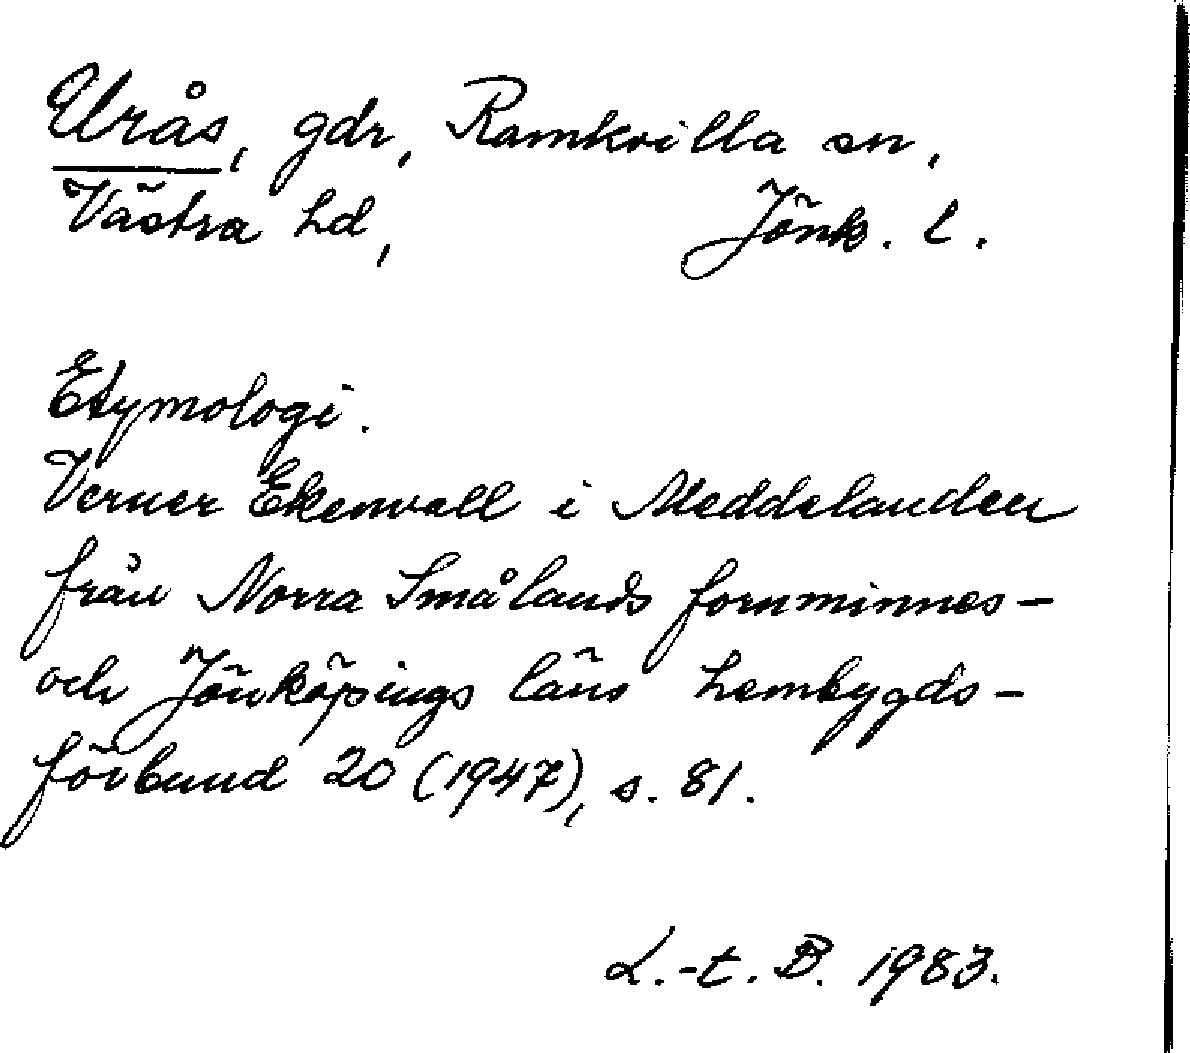 Urås, gdr, Ramkvilla sn,
Västra hd, Jönk. l.
Etymologi.
Verner Ekenvall i Meddelanden
från Norra Smålands fornminnes-
och Jönköpings läns hembygds-
förbund 20 (1947), s. 81.
L.-t. B. 1983.